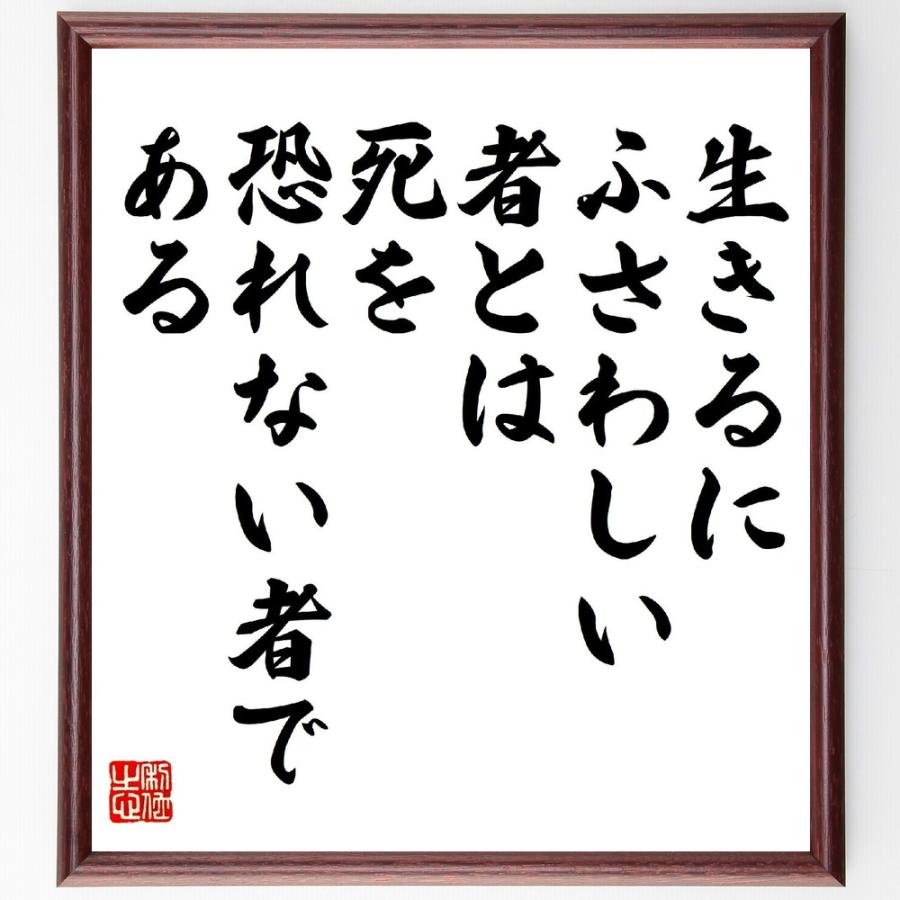 生きるに
ふさわしい
者とは
死を
恐れない者で
ある